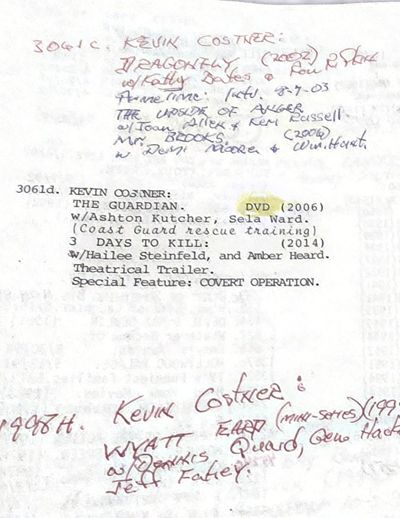 3061c. KEVIN COSTNER:
DRAGONFLY (2002)
w/Kathy Bates &
PrimeTime: Intv. 8-7-03
THE UPSIDE OF ANGER
w/Joan Allen & Keri Russell.
Mr. BROOKS. (2006)
w Demi Moore & Wm. Hurt.
3061d. KEVIN COSTNER:
THE GUARDIAN. DVD (2006)
w/Ashton Kutcher, Sela Ward.
(Coast Guard rescue training)
3 DAYS TO KILL: (2014)
w/Hailee Steinfeld, and Amber Heard.
Theatrical Trailer.
Special Feature: COVERT OPERATION.
1998H. KEVIN Costner:
WYATT EARP (MINI-SERIES) (199
w/DENNIS Quard, Gene Hack
Jeff Fahey.